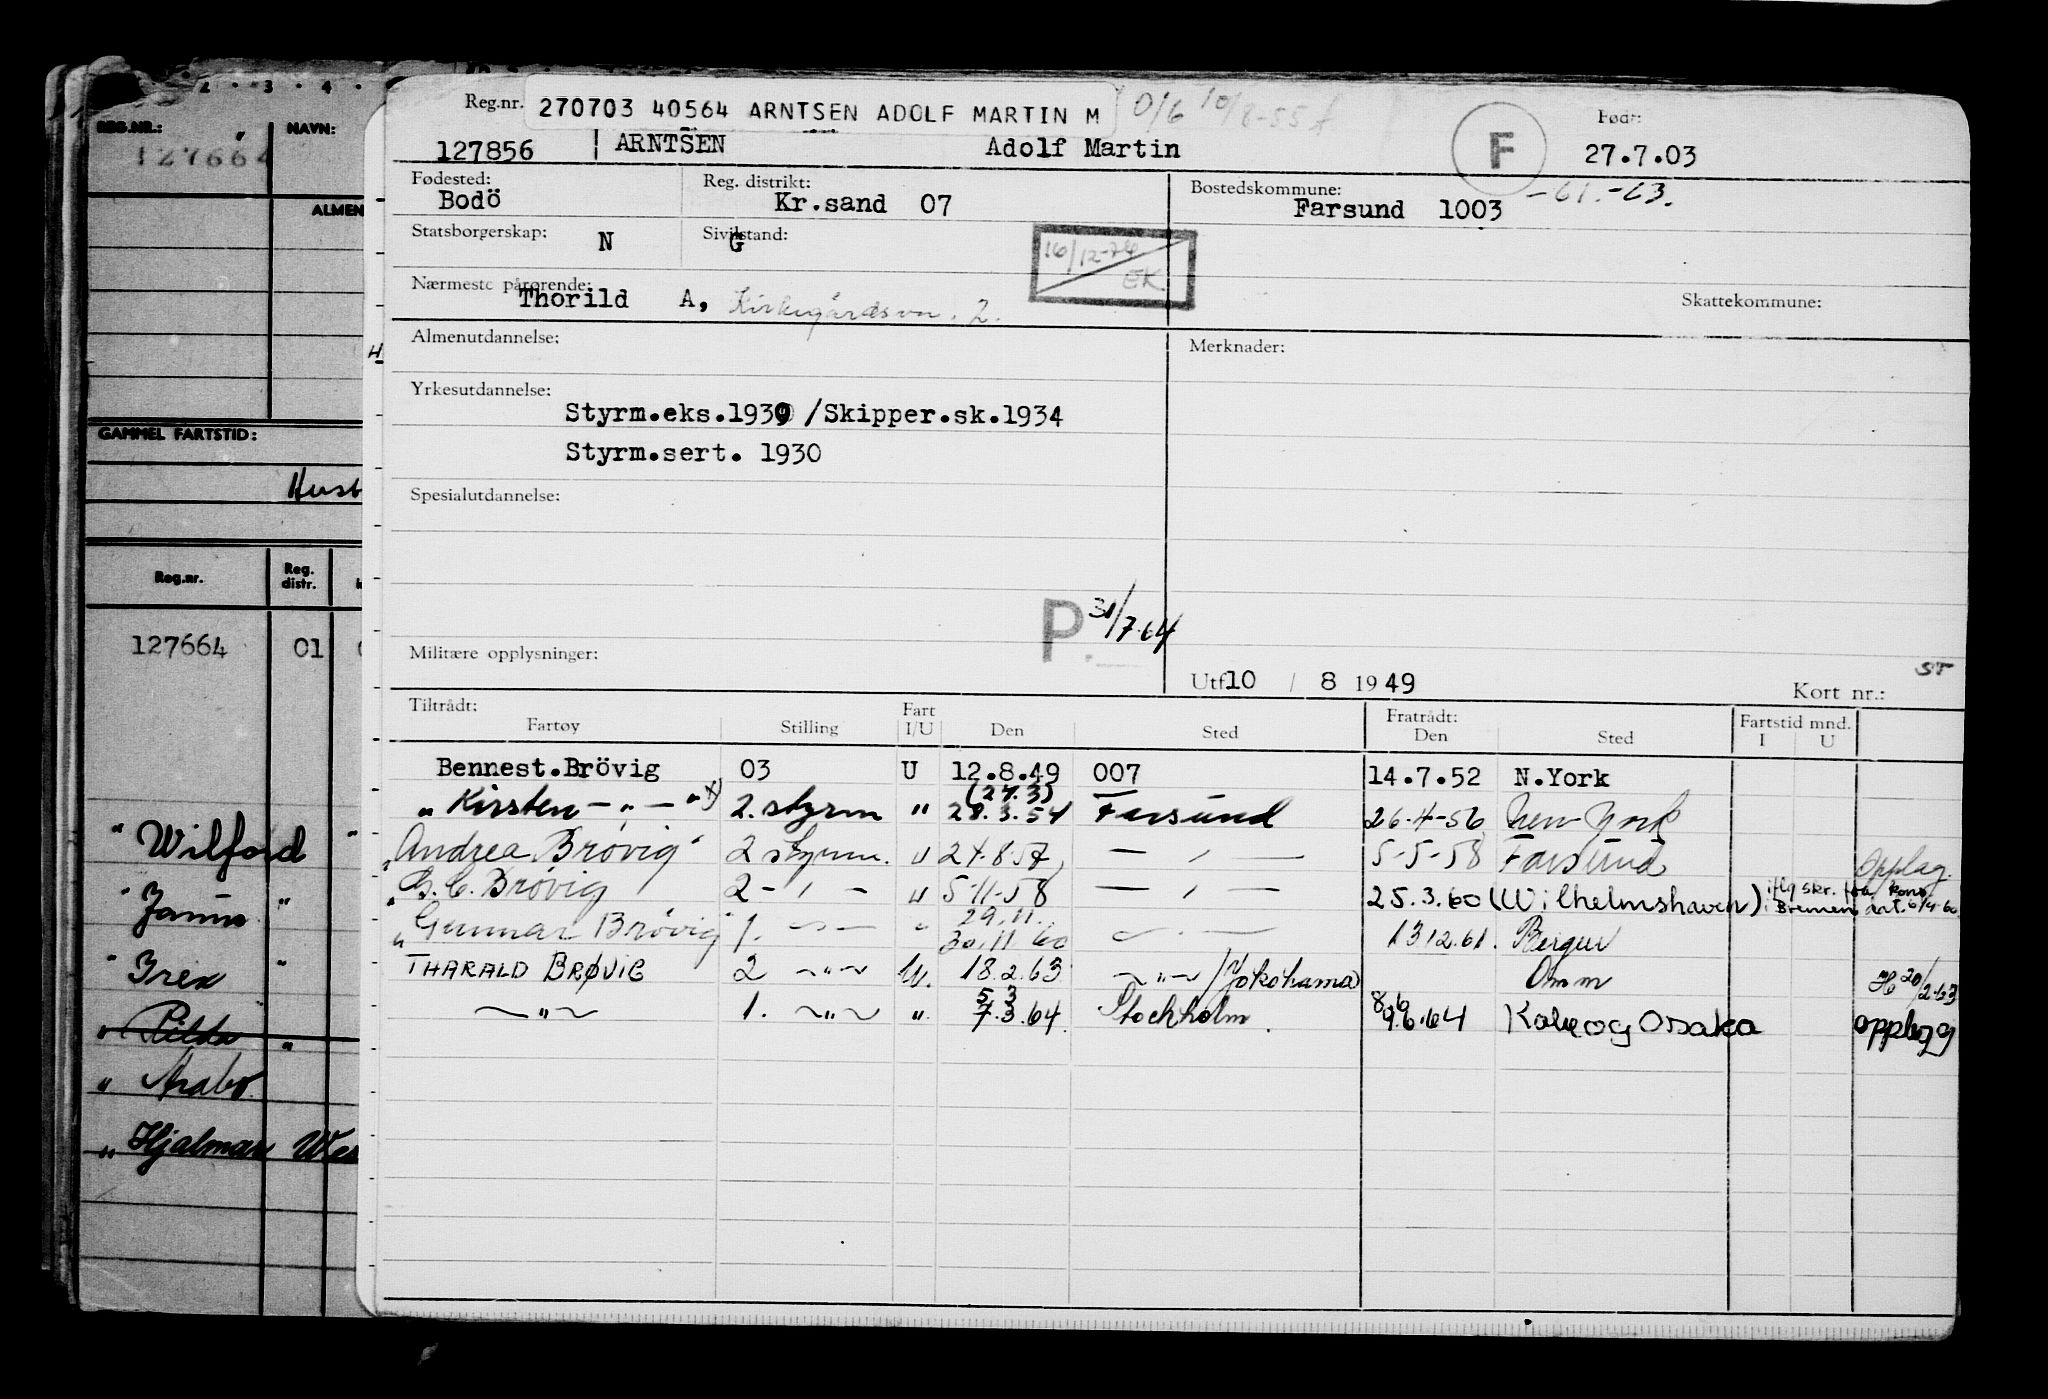 2 · 3 · 4 ·
REG.NR.: NAVN:
127664
ALMEN
GAMMEL FARTSTID:
Reg.nr. Reg. distr.
127664 01
" Wilford "
" Janus "
" Irex "
" Pilda "
" Arabo
" Hjalmar Wes
Reg.nr. 270703 40564 ARNTSEN ADOLF MARTIN M 0/6 10/8-55
F
Født:
127856 ARNTSEN Adolf Martin 27.7.03
Fødested: Reg. distrikt: Bostedskommune: -61.-63.
Bodö Kr.sand 07 Farsund 1003
Statsborgerskap: N Sivilstand: G
16/12-76 EK
Nærmeste pårørende: Skattekommune:
Thorild A, Kirkegårdsvn. 2.
Almenutdannelse: Merknader:
Yrkesutdannelse:
Styrm.eks.1930 /Skipper.sk.1934
Styrm.sert. 1930
Spesialutdannelse:
P 31/7.64
Militære opplysninger:
Utf10 / 8 1949 Kort nr.: ST
Tiltrådt: Fartøy Stilling Fart I/U Den Sted Fratrådt: Den Sted Fartstid mnd. I U
Bennest.Brövig 03 U 12.8.49 007 14.7.52 N.York
(27.3)
" Kirsten - " - " x) 2. styrm " 28.3.54 Farsund 26-4-56 New York
"Andrea Brøvig" 2 styrm. " 24.8.57 — " — 5-5-58 Farsund opplag.
"G. C. Brøvig 2 - " - " 5-11-58 — " — 25.3.60 (Wilhelmshaven) iflg skr. fra kons. i Bremen dat. 6/4-60
29.11.
"Gunnar Brøvig" 1. - " - " 30.11.60 — " — 13.12.61. Bergen
THARALD BRØVIG 2 - " - U. 18.2.63 - " - / Yokohama Omm 20/2-63
5 3 8.6
- " - 1. - " - ". 7.3.64. Stockholm. 9.6.64 Kobe og Osaka opplegg